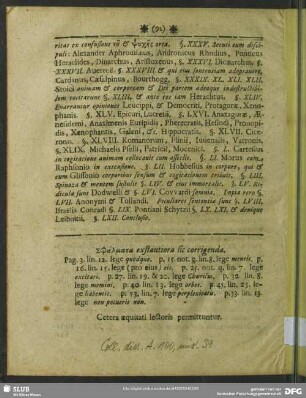 ✻ (92) ✻
ritas ex confusione τοῦ & ψυχῆς orta. §. XXXV. Secuti eum discipuli:
Alexander Aphrodisæus, Andronicus Rhodius, Ponticus
Heraclides, Dicæarchus, Aristoxenus, §. XXXVI. Dicæarchus, §.
XXXVII. Averroës. §. XXXVIII & qui ejus sententiam adoptarunt,
Cardanus, Cæsalpinus, Bourhogg, §. XXXIX. XL. XLI. XLII.
Stoici animam & corpoream & Dei partem adeoque indestructibilem
§. XLIII, & ante eos jam Heraclitus, §. XLIV.
Enarrantur opiniones Leucippi, & Democriti, Protagoræ, Xenophanis,
§. XLV. Epicuri, Lucretii, §. XLVI. Anaxagoræ,
Anaximenis Euripidis, Pherecratis, Hesiodi,
Xenophantis, Galeni, &c. Hippocratis, §. XLVII. Ciceronis,
§. XLVIII. Romanorum, Plinii, Juvenalis, Varronis,
§. XLIX. Michaelis Pselli, Patricii, Mocenici. §. L. Cartesius
in cogitatione animam collocavit cum asseclis. §. LI. Morus cum
in extensione. §. LII. Hobbesius in corpore, qui &
cum Glissonio corporibus sensum & cogitationem tribuit. §. LIII.
Spinoza & mentem sustulit §. LIV. & ejus immortalit. §. LV.
sunt Dodwelli & §. LVI. Covvardi somnia. §.
LVII. Anonymi & Tollandi. sententiæ sunt §. LVIII.
Basilii Conradi §. LIX. Pontiani Schytzii §. LX. LXI. & denique
Leibnitii. §. LXII. Conclusio.
Σφάλματα exstantiora sic corrigenda.
Pag. 3. lin. 12. lege quodque. p. 15. not. g. lin. 8. lege mentis. p.
16. lin. 15. lege (pro eius) ei. p. 25. not. q. lin. 7. lege
excitari. p. 27. lin. 19. & 20. lege Charilai. p. 32. lin. 8.
lege memini. p. 40. lin. 13. lege orbes. p. 45. lin. 25. lege
habemus. p. 53. lin. 7. lege perplexitate. p. 53. lin. 13.
lege non potueris non.
Cetera æquitati lectoris permittuntur.
Coll. diss. A. 
SLUB